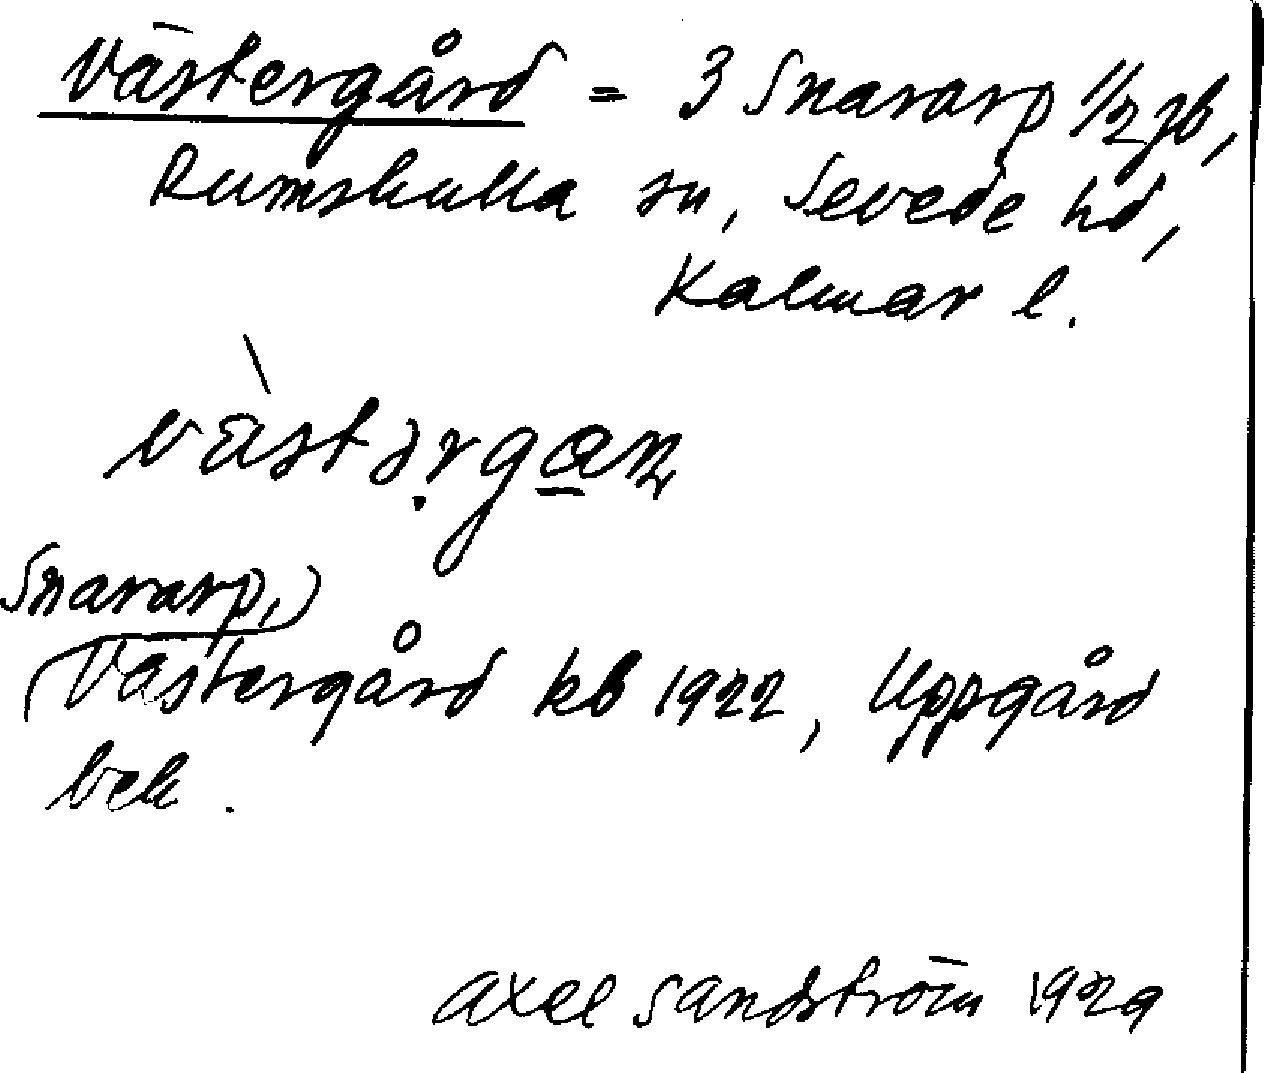 Västergård = 3 Snararp 1/2 gb,
Rumskulla sn, Sevede hd,
Kalmar l.
Snararp,
Västergård kb 1922, Uppgård
bek.
Axel Sandström 1929